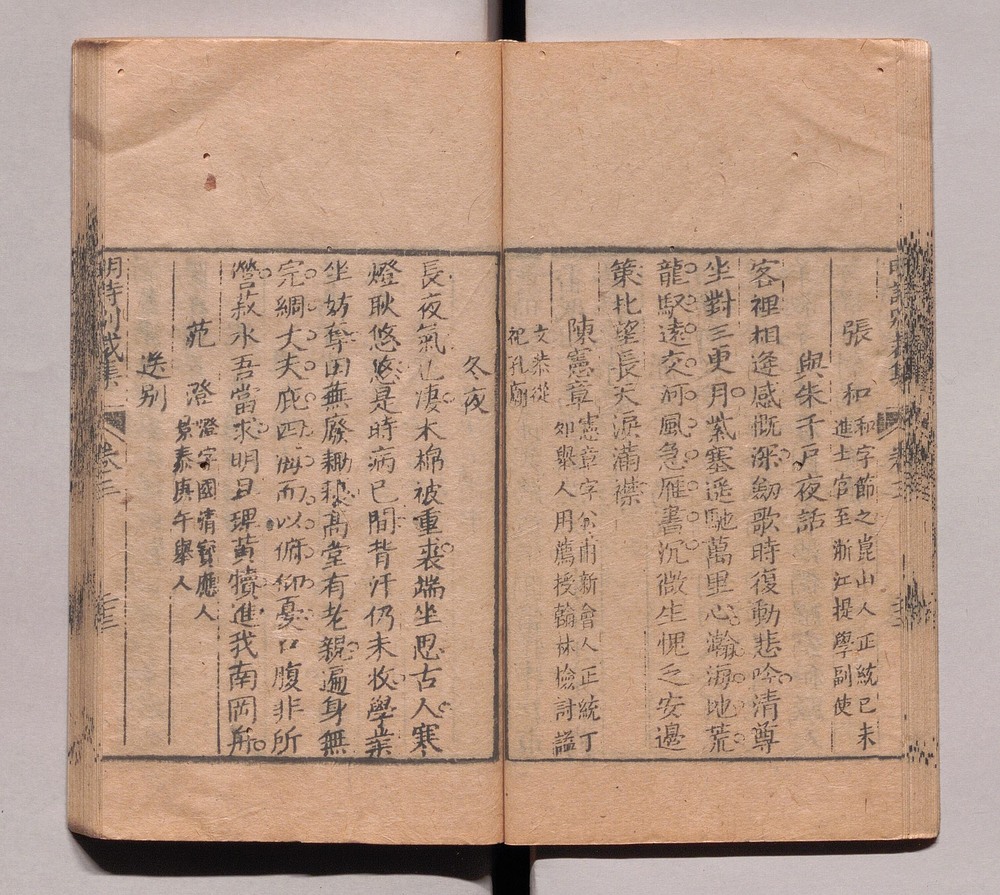 張　和
和字節之崑山人正統己未
進士官至浙江提學副使
與朱千戶夜話
客裡相逢感慨深劒歌時復動悲吟清尊
坐對三更月紫塞遥馳萬里心瀚海地荒
龍馭遠交河風急雁書沉微生愧乏安邊
策北望長天淚滿襟
陳憲章
憲章字公甫新會人正統丁
卯舉人用薦授翰林檢討諡
文恭從
祀孔廟
冬夜
長夜氣已凄木棉被重裘端坐思古人寒
燈耿悠悠是時病已間背汗仍未收學業
坐妨奪田蕪廢耡耰高堂有老親遍身無
完綢丈夫庇四海而以俯仰憂口腹非所
營菽水吾當求明旦理黃犢進我南岡所
范　澄
澄字國清寶應人
景泰庚午舉人
送別
明詩別裁集
卷三